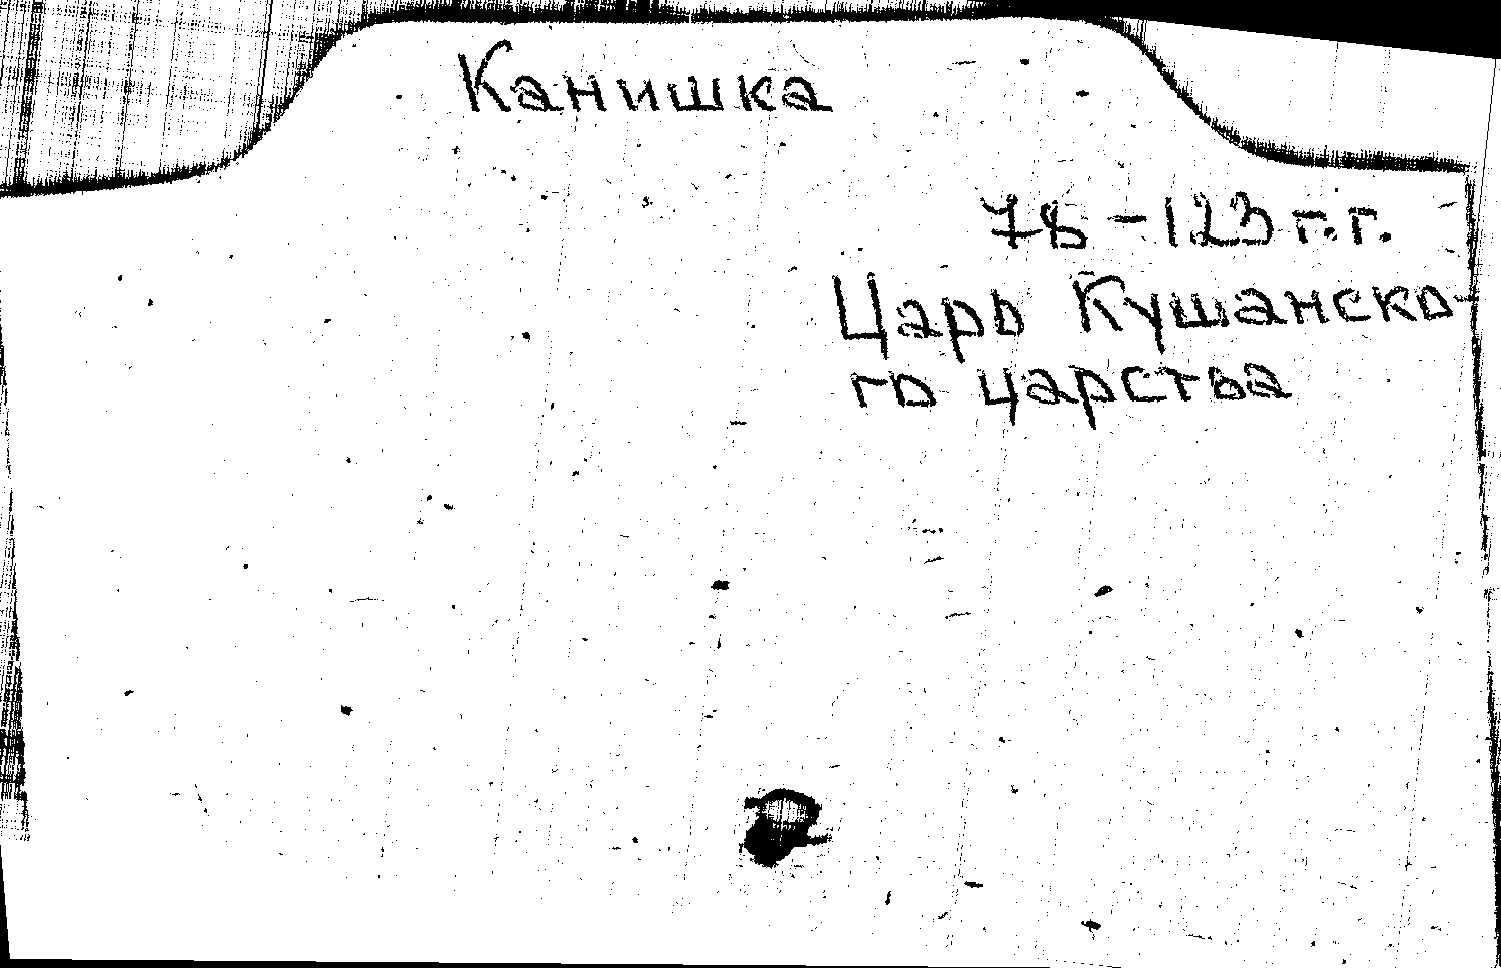 Канишка
78-123 г.г.
Царь Кушанско-
го царства